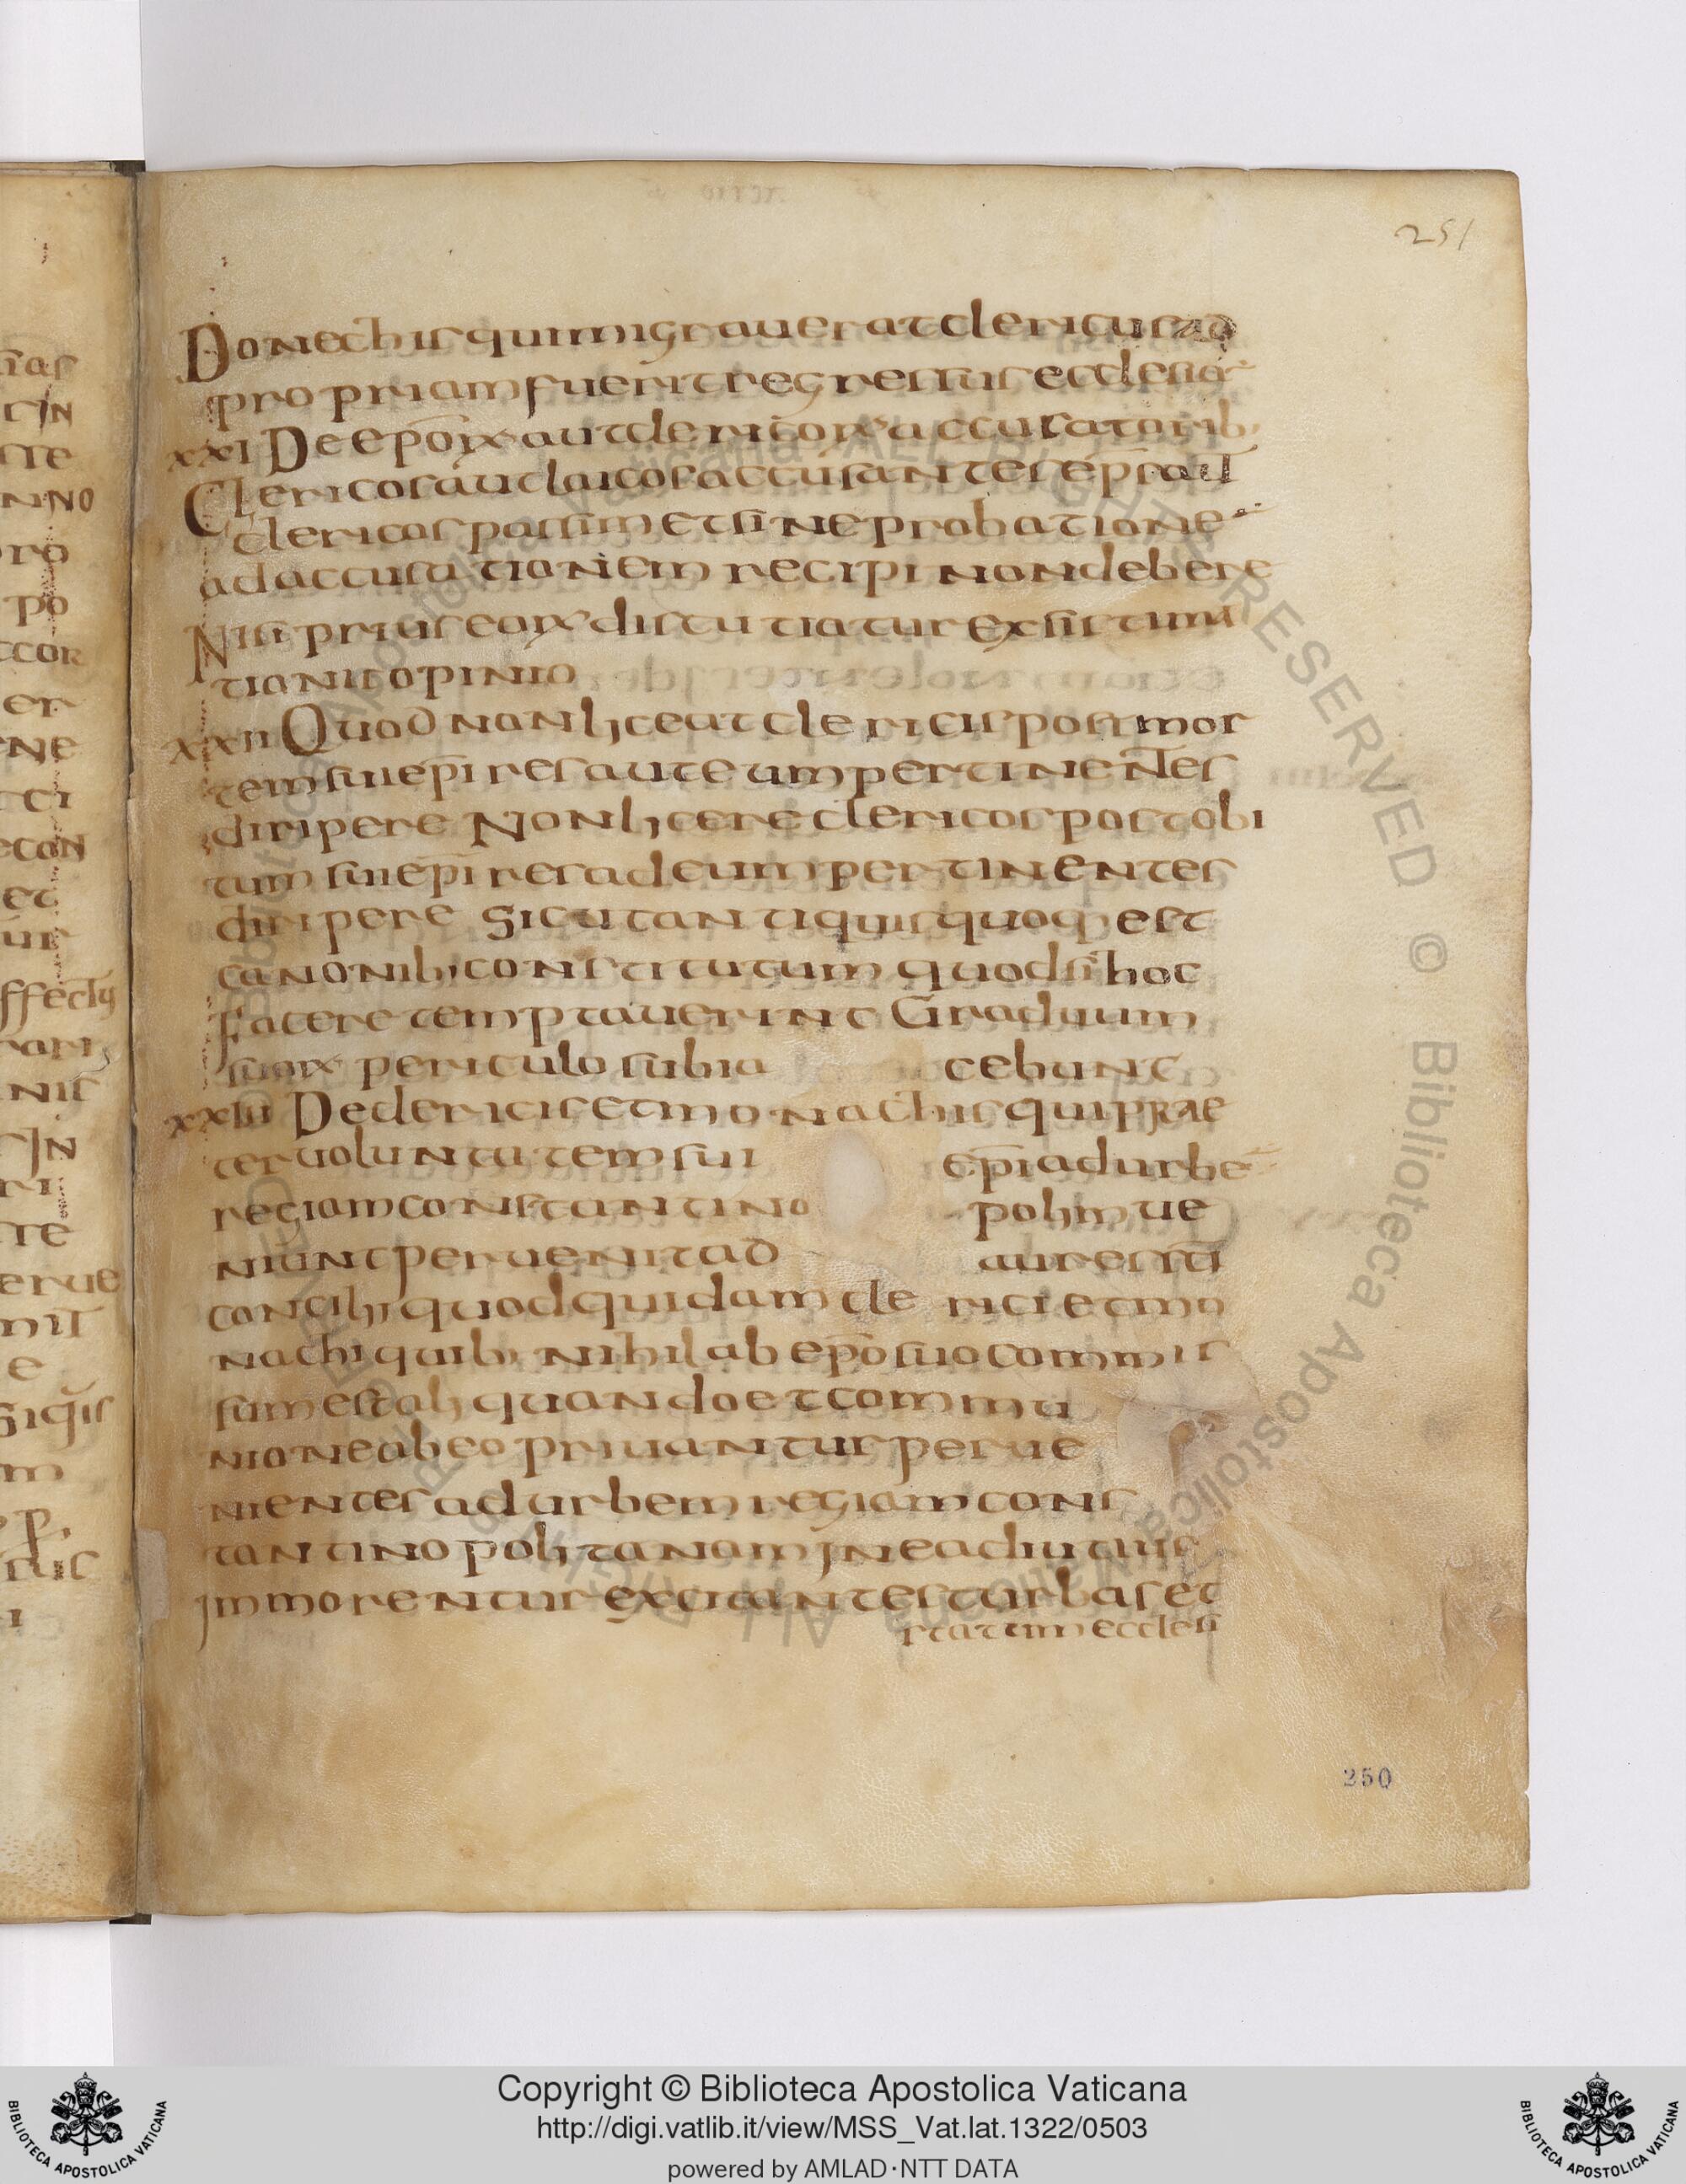 251
Donec his qui migraverat clericus ad
propriam fuerit regressus ecclesiā
XXI De epōrx aut clericorx accusatorib;
Clericos aut laicos accusantes ep̄s aut
clericos passim et sine probatione
ad accusationem recipi non debere
Nisi prius eorx discutiatur existima
tionis opinio
XXII Quod non liceat clericis post mor
tem sui ep̄i res aut eum pertinentes
diripere Non licere clericos post obi
tum sui ep̄i res ad eum pertinentes
diripere Sicut antiquis quoq; est
canonib; constitutum quod si hoc
facere temptaverint Graduum
suorx periculo subia cebunt
XXIII De clericis et monachis qui prae
ter voluntatem sui ep̄i ad urbē
regiam constantino polim ve
niunt pervenit ad aures sc̄i
concilii quod quidam cle rici et mo
nachi quib; nihil ab ep̄o suo commis
sum est aliquando et commu
nione ab eo privantur perve
nientes ad urbem regiam cons
tantinopolitanam in ea diutius
immorentur excitantes turbas et
statum ecclesi
250
ALL RIGHTS RESERVED © Biblioteca Apostolica Vaticana
Copyright © Biblioteca Apostolica Vaticana
http://digi.vatlib.it/view/MSS_Vat.lat.1322/0503
powered by AMLAD·NTT DATA
BIBLIOTECA APOSTOLICA VATICANA
BIBLIOTECA APOSTOLICA VATICANA